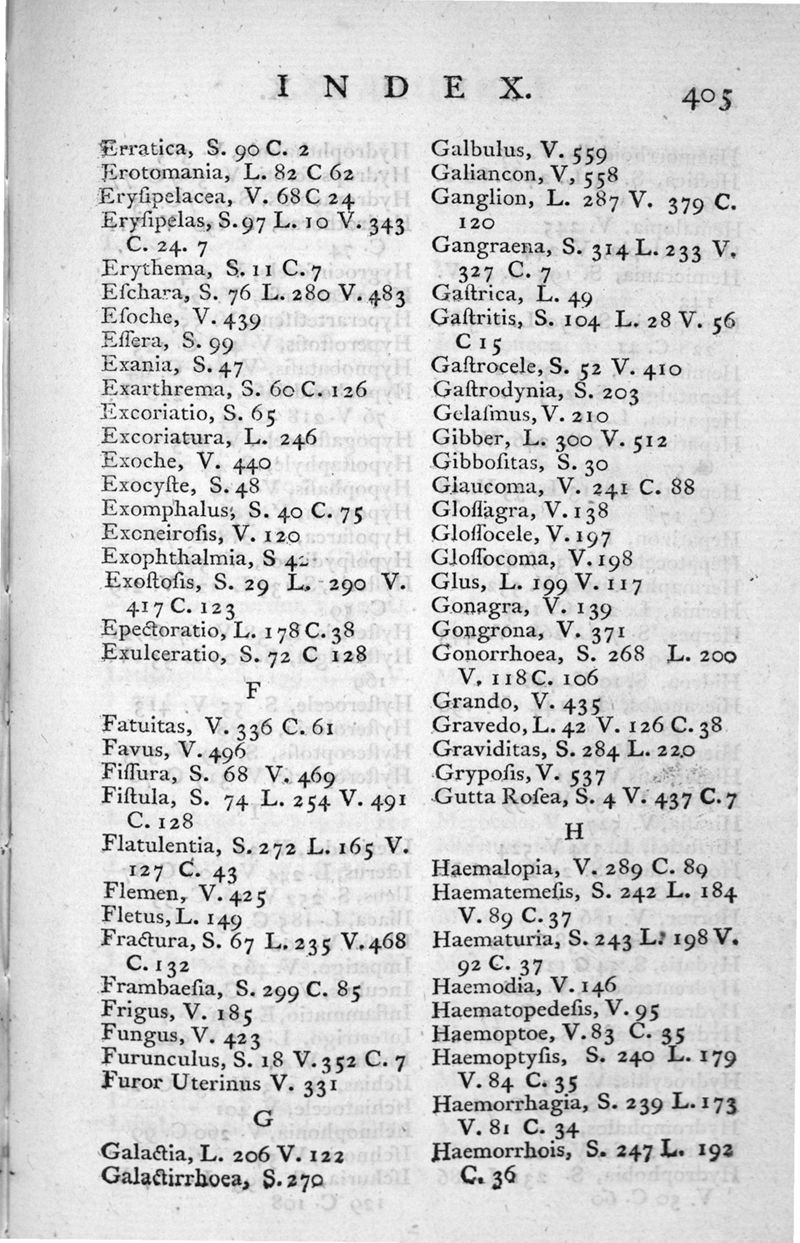 INDEX.
405
Erratica, S. 90 C. 2
Erotomania, L. 82 C 62
Eryſipelacea, V. 68 C 24
Eryſipelas, S. 97 L. 10 V. 343
C. 24. 7
Erythema, S. 11 C. 7
Eſchara, S. 76 L. 280 V. 483
Eſoche, V. 439
Eſſera, S. 99
Exania, S. 47
Exarthrema, S. 60 C. 126
Excoriatio, S. 65
Excoriatura, L. 246
Exoche, V. 440
Exocyſte, S. 48
Exomphalus, S. 40 C. 75
Exoneiroſis, V. 120
Exophthalmia, S 42
Exoſtoſis, S. 29 L. 290 V.
417 C. 123
Epectoratio, L. 178 C. 38
Exulceratio, S. 72 C 128
F
Fatuitas, V. 336 C. 61
Favus, V. 496
Fiſſura, S. 68 V. 469
Fiſtula, S. 74 L. 254 V. 491
C. 128
Flatulentia, S. 272 L. 165 V.
127 C. 43
Flemen, V. 425
Fletus, L. 149
Fractura, S. 67 L. 235 V. 468
C. 132
Frambaeſia, S. 299 C. 85
Frigus, V. 185
Fungus, V. 423
Furunculus, S. 18 V. 352 C. 7
Furor Uterinus V. 331
G
Galactia, L. 206 V. 122
Galactirrhoea, S. 270
Galbulus, V. 559
Galiancon, V, 558
Ganglion, L. 287 V. 379 C.
120
Gangraena, S. 314 L. 233 V.
327 C. 7
Gaſtrica, L. 49
Gaſtritis, S. 104 L. 28 V. 56
C 15
Gaſtrocele, S. 52 V. 410
Gaſtrodynia, S. 203
Gelaſmus, V. 210
Gibber, L. 300 V. 512
Gibboſitas, S. 30
Glaucoma, V. 241 C. 88
Gloſſagra, V. 138
Gloſſocele, V. 197
Gloſſocoma, V. 198
Glus, L. 199 V. 117
Gonagra, V. 139
Gongrona, V. 371
Gonorrhoea, S. 268 L. 200
V. 118 C. 106
Grando, V. 435
Gravedo, L. 42 V. 126 C. 38
Graviditas, S. 284 L. 220
Grypoſis, V. 537
Gutta Roſea, S. 4 V. 437 C. 7
H
Haemalopia, V. 289 C. 89
Haematemeſis, S. 242 L. 184
V. 89 C. 37
Haematuria, S. 243 L. 198 V.
92 C. 37
Haemodia, V. 146
Haematopedeſis, V. 95
Haemoptoe, V. 83 C. 35
Haemoptyſis, S. 240 L. 179
V. 84 C. 35
Haemorrhagia, S. 239 L. 173
V. 81 C. 34
Haemorrhois, S. 247 L. 192
C. 36